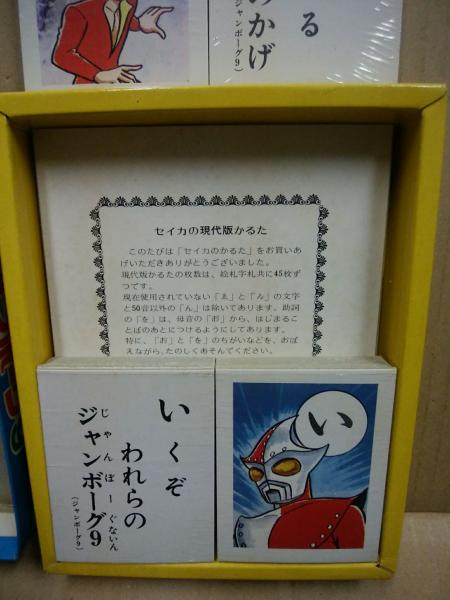 る
かげ
(ジャンボーグ9)
セイカの現代版かるた
このたびは「セイカのかるた」をお買いあ
げいただきありがとうございました。
現代版かるたの枚数は、絵札字札共に45枚ず
つです。
現在使用されていない「ゑ」と「ゐ」の文字
と50音以外の「ん」は除いてあります。助詞
の「を」は、母音の「お」から、はじまるこ
とばのあとにつけるようにしてあります。
特に、「お」と「を」のちがいなどを、おぼ
えながら、たのしくあそんでください。
いくぞ
われらの
ジャンボーグ9
じゃんぼーぐないん
(ジャンボーグ9)
い